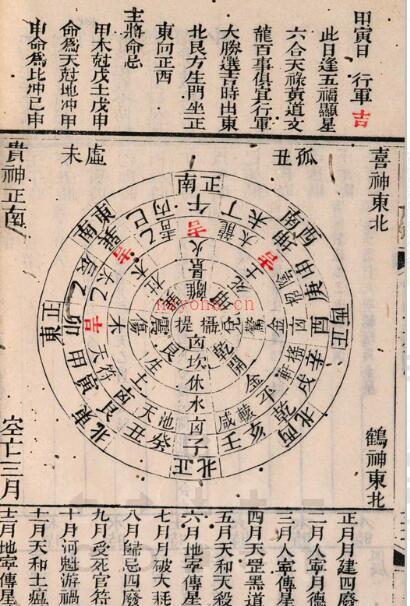 甲寅日 行軍 吉
此日逢五福顯星
六合天祿黃道文
龍百事俱宜行軍
大勝選吉時出東
北艮方生門坐正
東向正西
主將命忌
甲木尅戊土戊申
命爲天尅地冲甲
申命爲比冲己申
喜神東北
鶴神東北
孤丑
虛未
貴神正南
空亡三月
正南
午
吉
火
景
離
西南
坤
未丁
吉
正西
酉
庚申
辛戌
金
驚
西北
乾
亥壬
開
金
咸
正北
子
凶
水
休
坎
東北
艮
丑癸
天池
土
生
正東
卯
甲寅
吉
木
天符
凶
東南
巽
巳
乙辰
吉
太乙
正月月建四廢
二月人宰月德
三月人宰傳星
四月天罡黑道
五月天和天殺
六月地宰傳星
七月月破大耗
八月歸忌四廢
九月受死官符
十月河魁游禍
十一月天和土瘟
十二月地宰傳星
nayona.cn